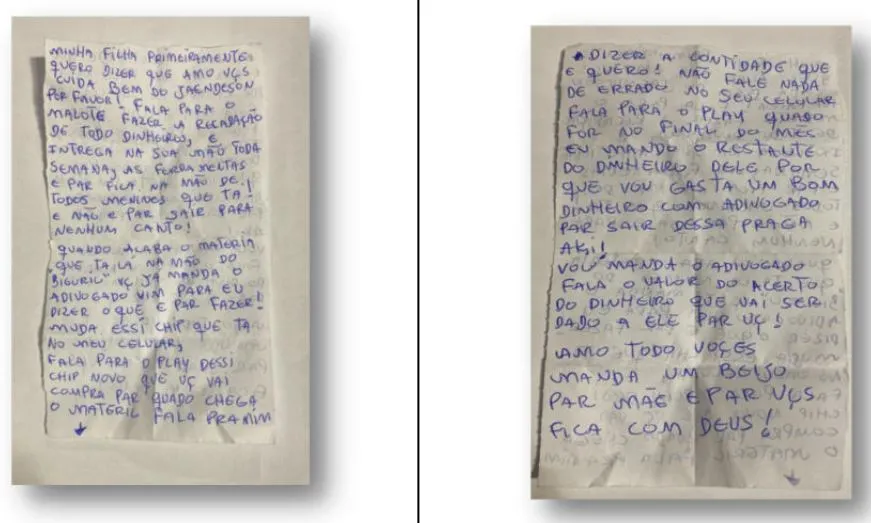 MINHA FILHA PRIMEIRAMENTE
QUERO DIZER QUE AMO VÇS
CUIDA BEM DO JAENDESON
POR FAVOR! FALA PARA O
MALOTE FAZER A RECADAÇÃO
DE TODO DINHEIROS, E
INTREGA NA SUA MÃO TODA
SEMANA, AS FERRAMELTAS
E PAR FICA NA MÃO DE
TODOS MENINOS QUE TA!
E NÃO E PAR SAIR PARA
NENHUM CANTO!
QUANDO ACABA O MATERIA
QUE TA LÁ NA MÃO DO
"BIGURIL" VÇ JÁ MANDA O
ADIVOGADO VIM PARA EU
DIZER O QUE E PAR FAZER!
MUDA ESSI CHIP QUE TA
NO MEU CELULAR,
FALA PARA O PLAY DESSI
CHIP NOVO QUE VÇ VAI
COMPRA PAR QUADO CHEGA
O MATERIL FALA PRA MIM
DIZER A CONTIDADE QUE
E QUERO! NÃO FALE NADA
DE ERRADO NO SEU CELULAR
FALA PARA O PLAY QUADO
FOR NO FINAL DO MÊS
EU MANDO O RESTANTE
DO DINHEIRO DELE POR
QUE VOU GASTA UM BOM
DINHEIRO COM ADIVOGADO
PAR SAIR DESSA PRAGA
AKI!
VOU MANDA O ADIVOGADO
FALA O VALOR DO ACERTO
DO DINHEIRO QUE VAI SER
DADO A ELE PAR VÇ!
AMO TODO VOÇES
MANDA UM BEIJO
PAR MÃE E PAR VÇS
FICA COM DEUS!